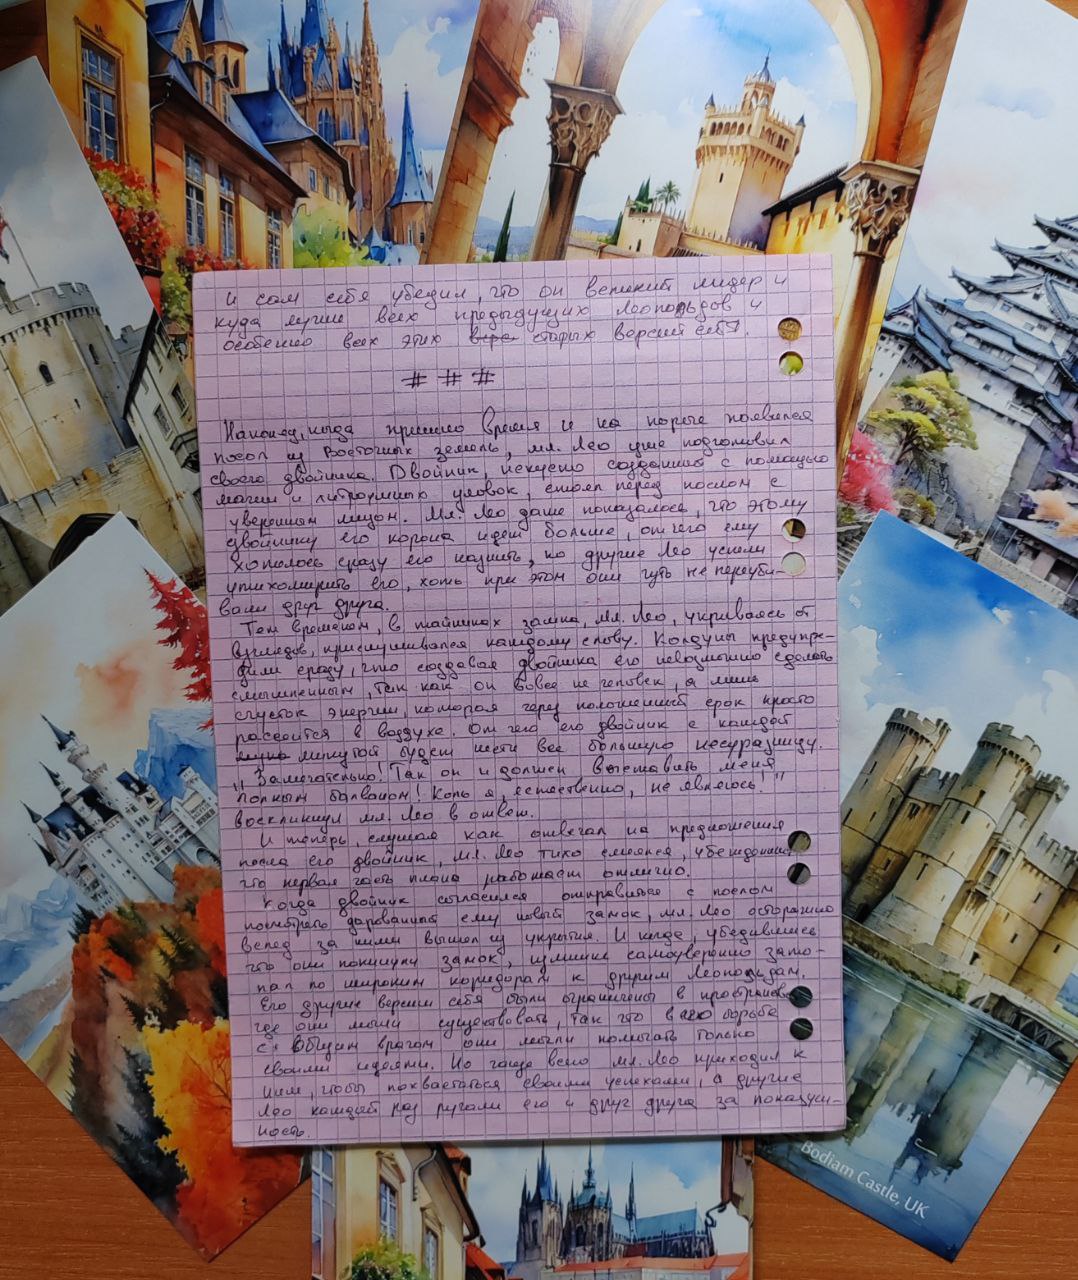 и сам себя убедил, что он великий лидер и
куда лучше всех предыдущих Леопольдов и
особенно всех этих старых версий себя.
# # #
Наконец, когда пришло время и на пороге появился
посол из Восточных земель, мл. Лео уже подготовил
своего двойника. Двойник, искусно созданный с помощью
магии и хитроумных уловок, стоял перед послом с
уверенным лицом. Мл. Лео даже показалось, что этому
двойнику его корона идёт больше, от чего ему
хотелось сразу его казнить, но другие Лео успели
утихомирить его, хоть при этом они чуть не переуби-
вали друг друга.
Тем временем, в тайниках замка, мл. Лео, укрываясь от
взглядов, прислушивался каждому слову. Колдуны предупре-
дили сразу, что создавая двойника его невозможно сделать
смышленным, так как он вовсе не человек, а лишь
сгусток энергии, которая через положенный срок просто
рассеится в воздухе. От чего его двойник с каждой
минутой будет нести все большую несуразицу.
"Замечательно! Так он и должен выставить меня
полным болваном! Коль я, естественно, не являюсь!"
воскликнул мл. Лео в ответ.
И теперь, слушая как отвечал на предложения
посла его двойник, мл. Лео тихо смеялся, убежденный,
что первая часть плана работает отлично.
Когда двойник согласился отправиться с послом
посмотреть дарованный ему новый замок, мл. Лео осторожно
вслед за ними вышел из укрытия. И когда, убедившись
что они покинули замок, излишне самоуверенно зато-
пал по широким коридорам к другим Леопольдам.
Его другие версии себя были ограничены в пространстве
где они могли существовать, так что в его борьбе
с общим врагом они могли помогать только
своими идеями. Но чаще всего мл. Лео приходил к
ним, чтобы похвастаться своими успехами, а другие
Лео каждый раз ругали его и друг друга за показуш-
ность.
Bodiam Castle, UK